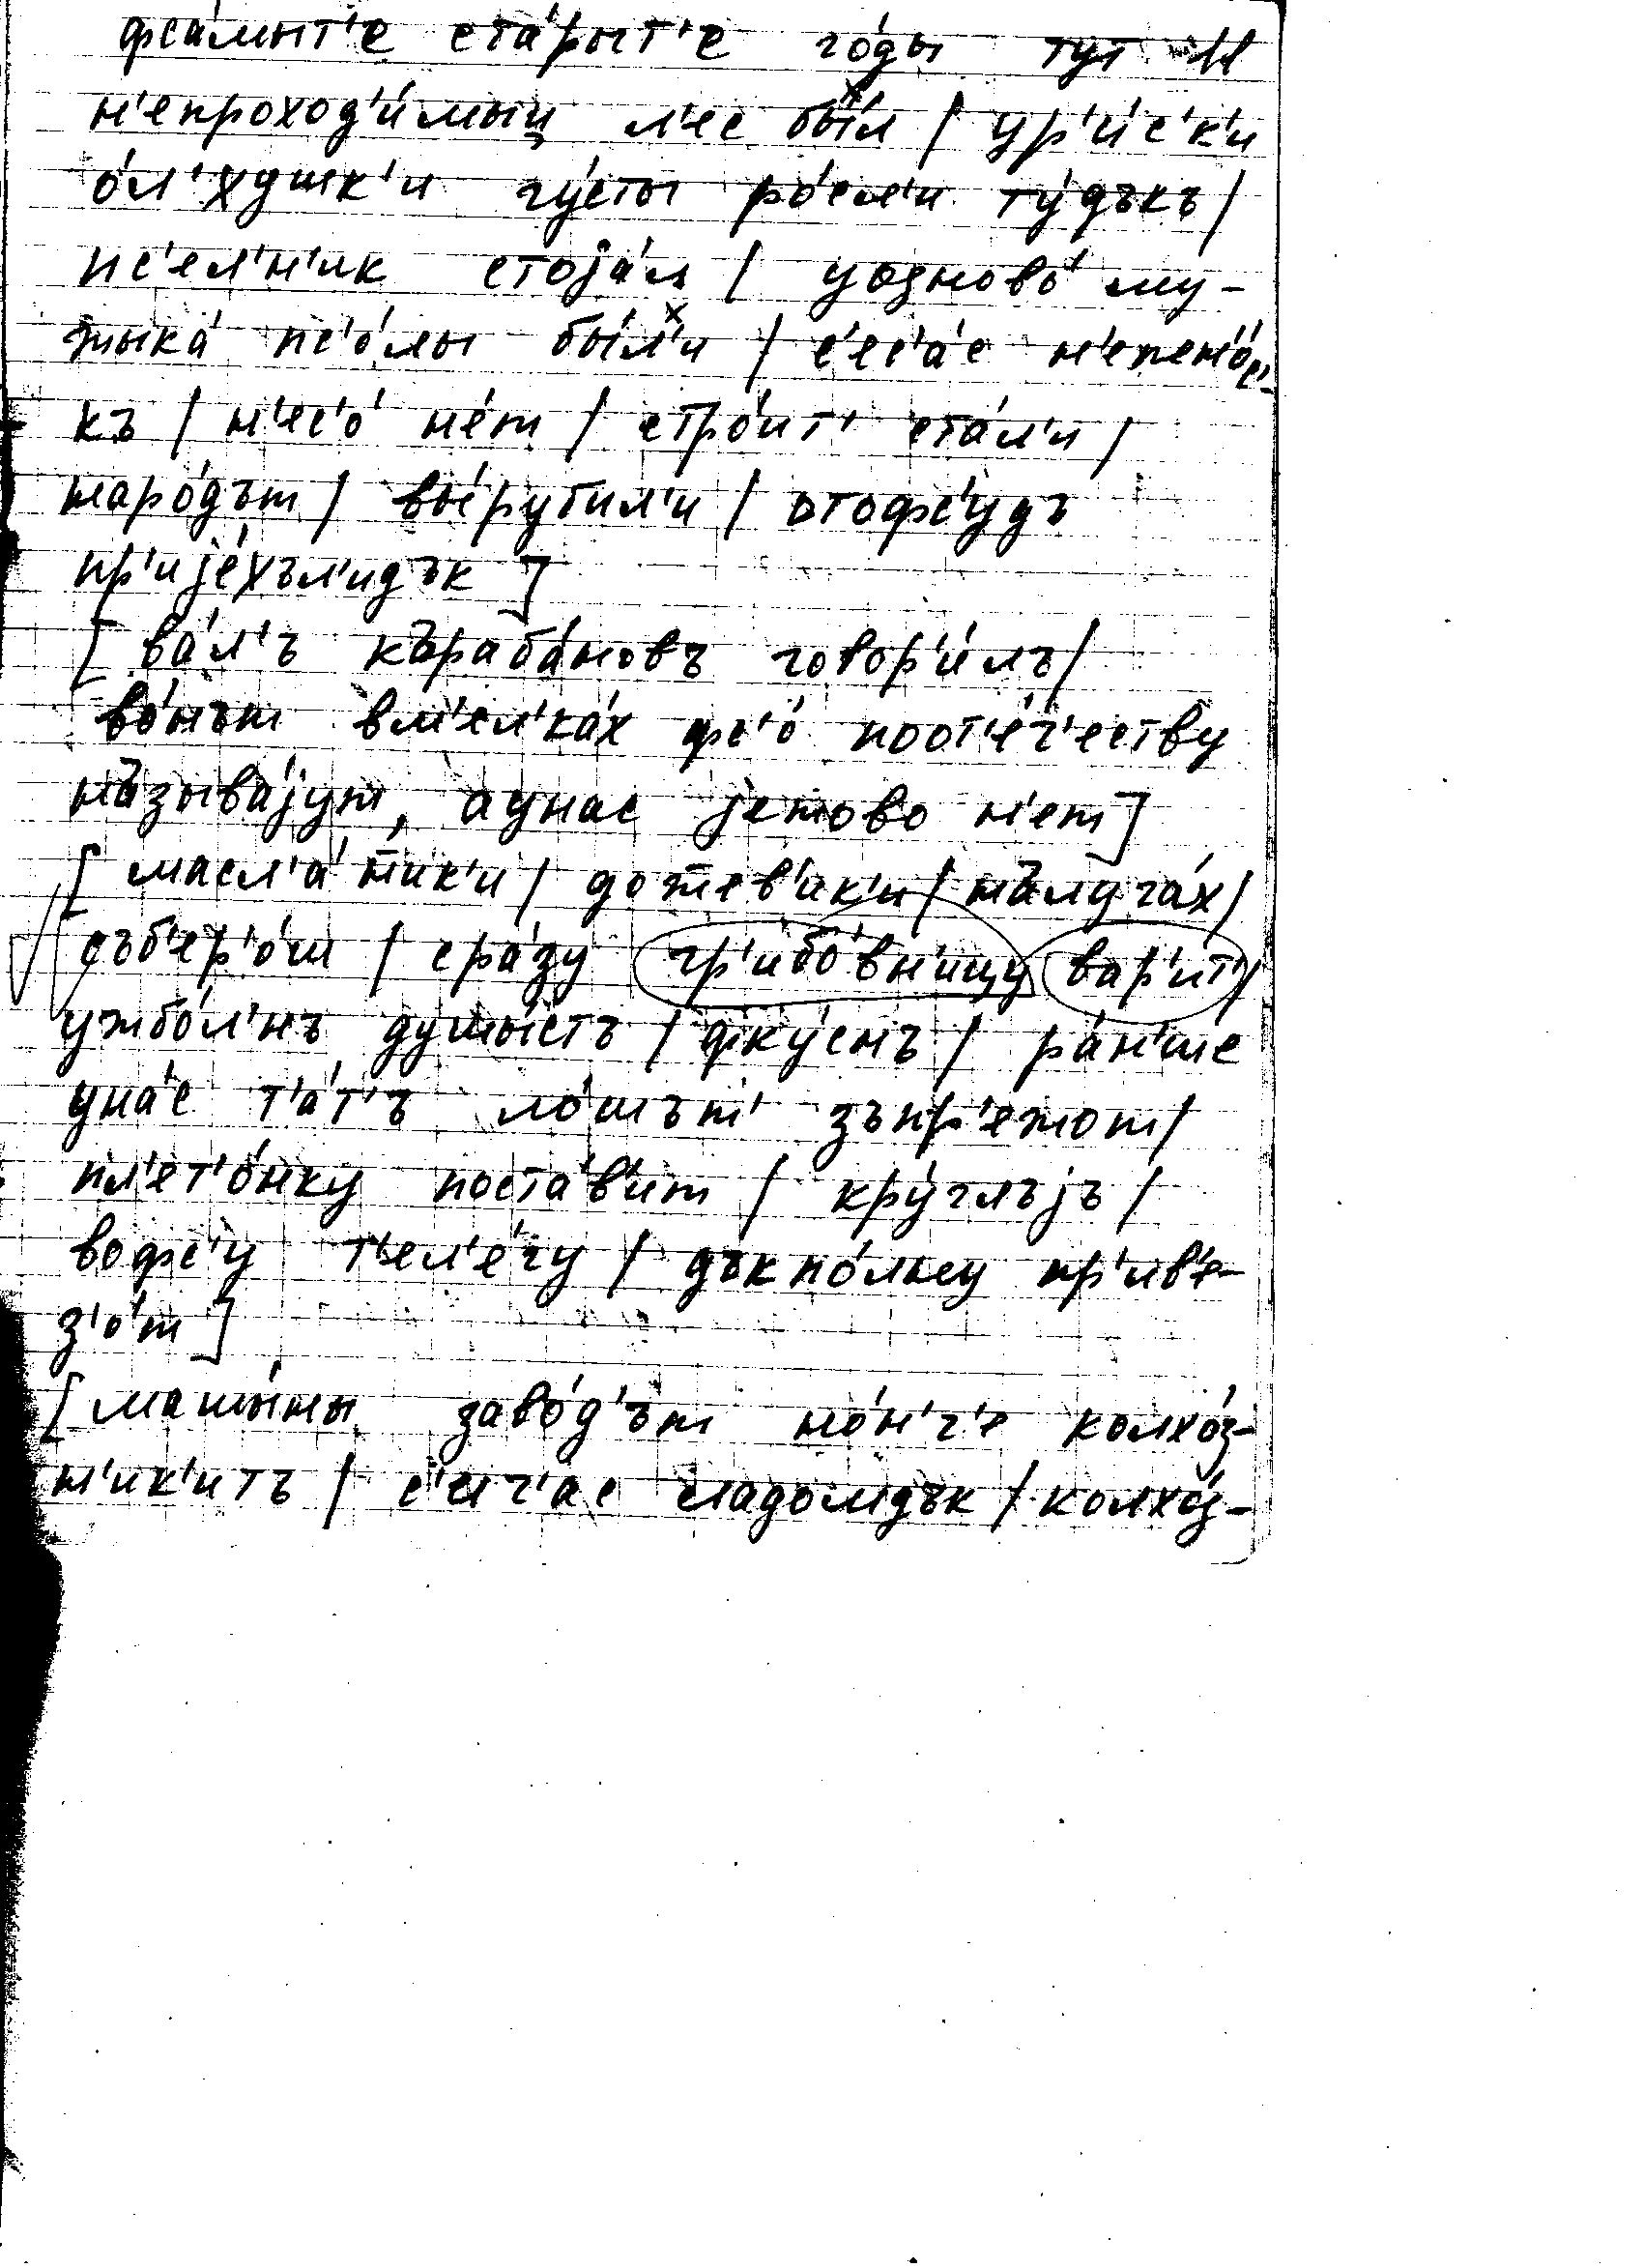 фса́мыт'е ста́рыт'е го́ды тут
н'епроход'и́мыи л'ес бы́л / ур'и́с'к'и
о́л'хушк'и гу́сты ро́сл'и ту́дъкъ /
пс'ел'н'ик стоја́л / уодново́ му-
жыка́ пс'о́лы бы́л'и / с'ес'а́с
къ / н'ес'о́ не́т / стро́ит' ста́л'и /
наро́дът / вы́рубил'и / отофс'у́дъ
пр'ијéхъл'идък ]
[ ва́л'ъ къраба́новъ говор'и́лъ /
во́нът вл'ел'ка́х фс'о́ поот'е́ч'еству
нъзыва́јут, аунас јетово н'ет ]
[ масл'а́ник'и / дожев'ик'и / нълуга́х /
съб'ер'о́ш / сра́зу гр'ибо́вн'ицу вар'ит' /
ужбо́л'нъ душы́стъ / фку́снъ / ра́н'ше
уна́с т'а́т'ъ ло́шът' зъпр'ежот /
пл'ет'о́нку поста́в'ит / кру́глъјъ /
вофс'у т'ел'е́гу / дъкпо́лну пр'ив'е-
з'о́т ]
[ машы́ны заво́д'ът но́н'ч'е колхо́з-
н'ик'итъ / с'ич'ас сладомдък / колхо́з-